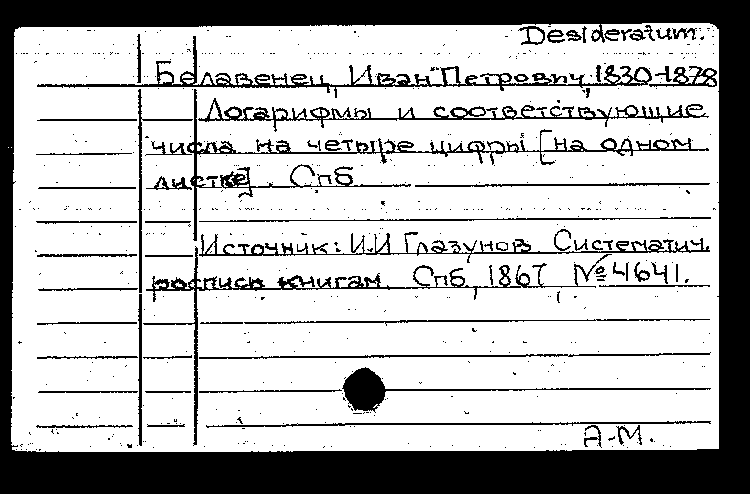 Desideratum.
Белавенец, Иван Петрович, 1830-1878
Логарифмы и соответствующие
числа на четыре цифры [на одном
листке]. Спб
Источник: И.И Глазунов. Систематич.
роспись книгам. Спб, 1867 № 4641.
А-М.